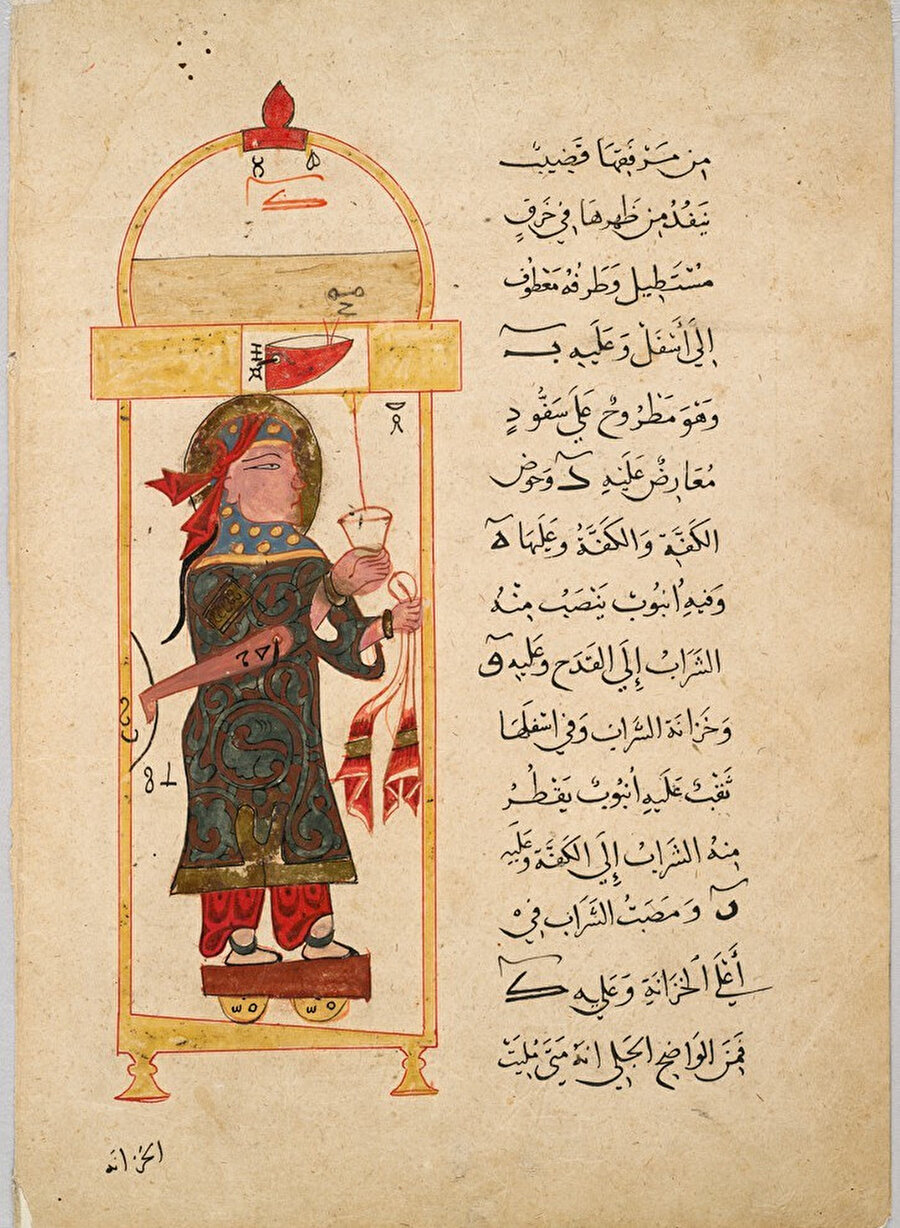 من مرفقها قضيب
ينفذ من ظهرها في خرق
مستطيل وطرفه معطوف
إلى أسفل وعليه بـ
وهو مطروح على سفود
معارض عليه كـ وحوض
الكفة والكفة وعليها
وفيه أنبوب ينصب منه
الشراب إلى القدح وعليه
وخزانة الشراب وفي أسفلها
ثقب عليه أنبوب يقطر
منه الشراب إلى الكفة وعليه
ن ومصب الشراب في
أعلى الخزانة وعليه كـ
فمن الواضح الجلي انه متى مليت
الخزانة